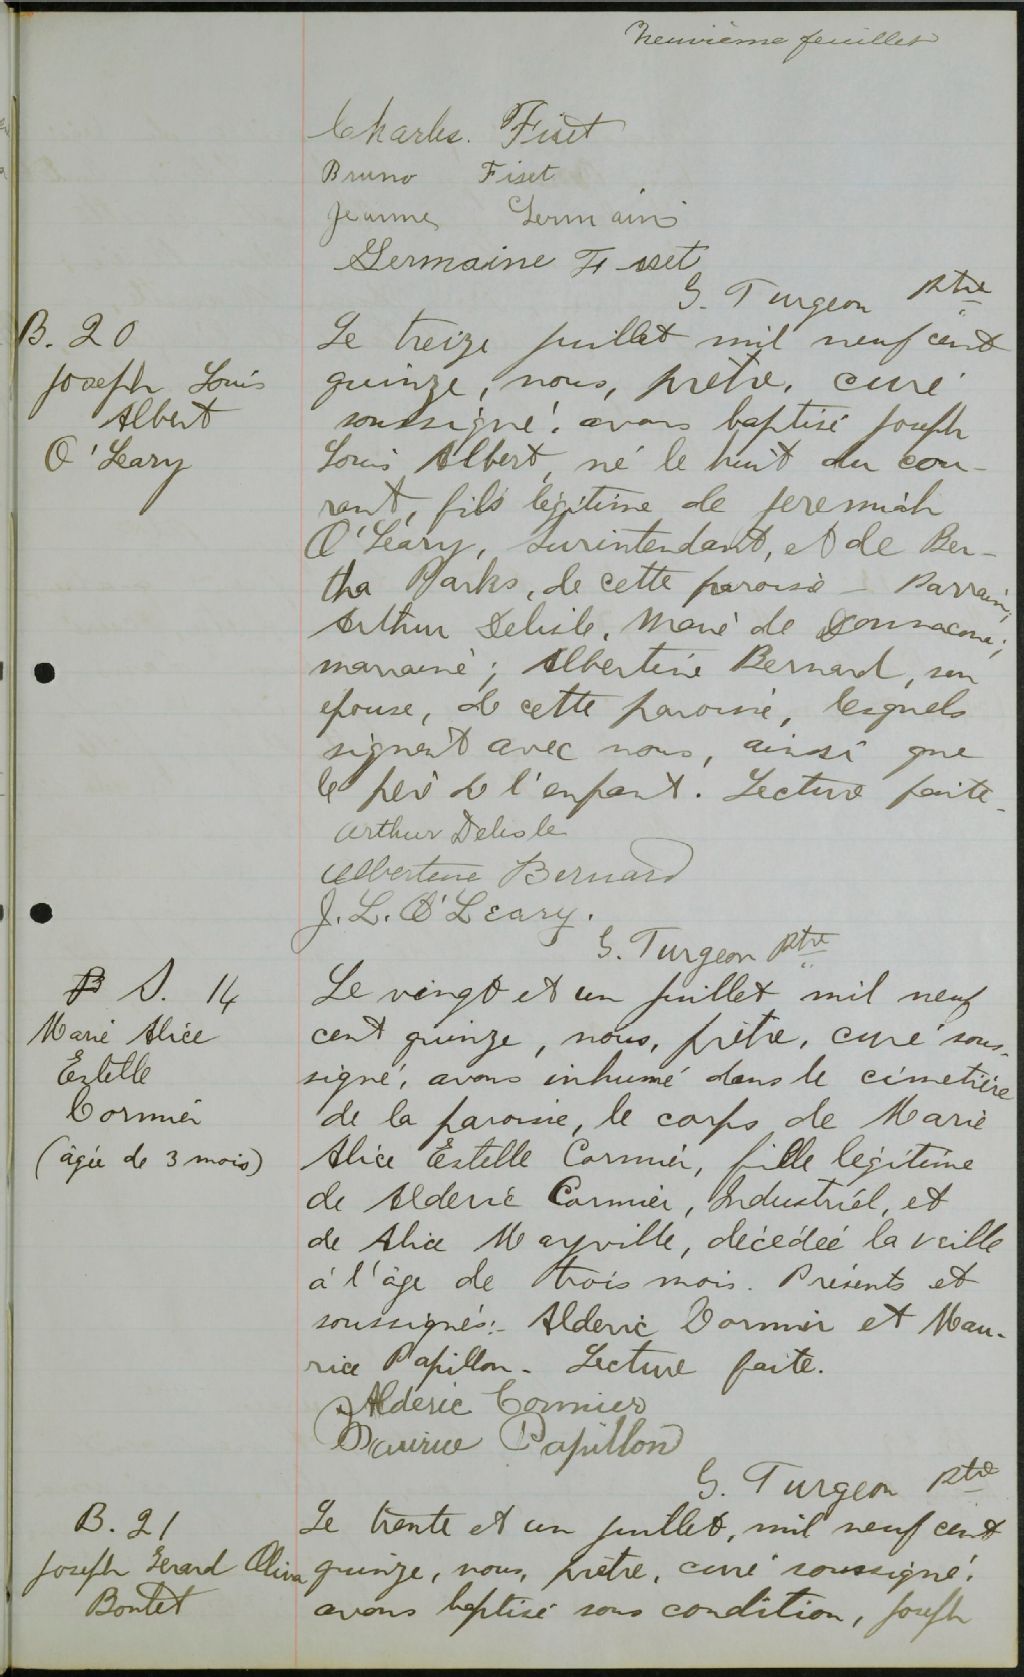 Neuvième feuillet
Charles. Fiset
Bruno Fiset
Jeanne Germain
Germaine Fisset
G. Turgeon Ptre
B. 20
Joseph Louis
Albert
O'Leary
Le treize juillet mil neuf cent
quinze, nous, prêtre, curé
soussigné, avons baptisé Joseph
Louis Albert, né le huit du cou-
rant, fils légitime de Jeremiah
O'Leary, surintendant, et de Ber-
tha Parks, de cette paroisse - Parrain,
Arthur Delisle, Marié de Donnacona;
marraine; Albertine Bernard, son
épouse, de cette paroisse, lesquels
signent avec nous, ainsi que
le père de l'enfant. Lecture faite-
Arthur Delisle
Albertine Bernard
J. L. O'Leary.
G. Turgeon Ptre
B S. 14
Marie Alice
Estelle
Cormier
(âgée de 3 mois)
Le vingt et un juillet mil neuf
cent quinze, nous, prêtre, curé sous-
signé, avons inhumé dans le cimetière
de la paroisse, le corps de Marie
Alice Estelle Cormier, fille légitime
de Alderic Cormier, Industriel, et
de Alice Mayville, décédée la veille
à l'âge de trois mois. Présents et
soussignés:- Alderic Cormier et Mau-
rice Papillon- Lecture faite.
Alderic Cormier
Maurice Papillon
G. Turgeon Ptre
B. 21
Joseph Gerard Oliva
Boutet
Le trente et un juillet, mil neuf cent
quinze, nous, prêtre, curé soussigné,
avons baptisé sous condition, Joseph